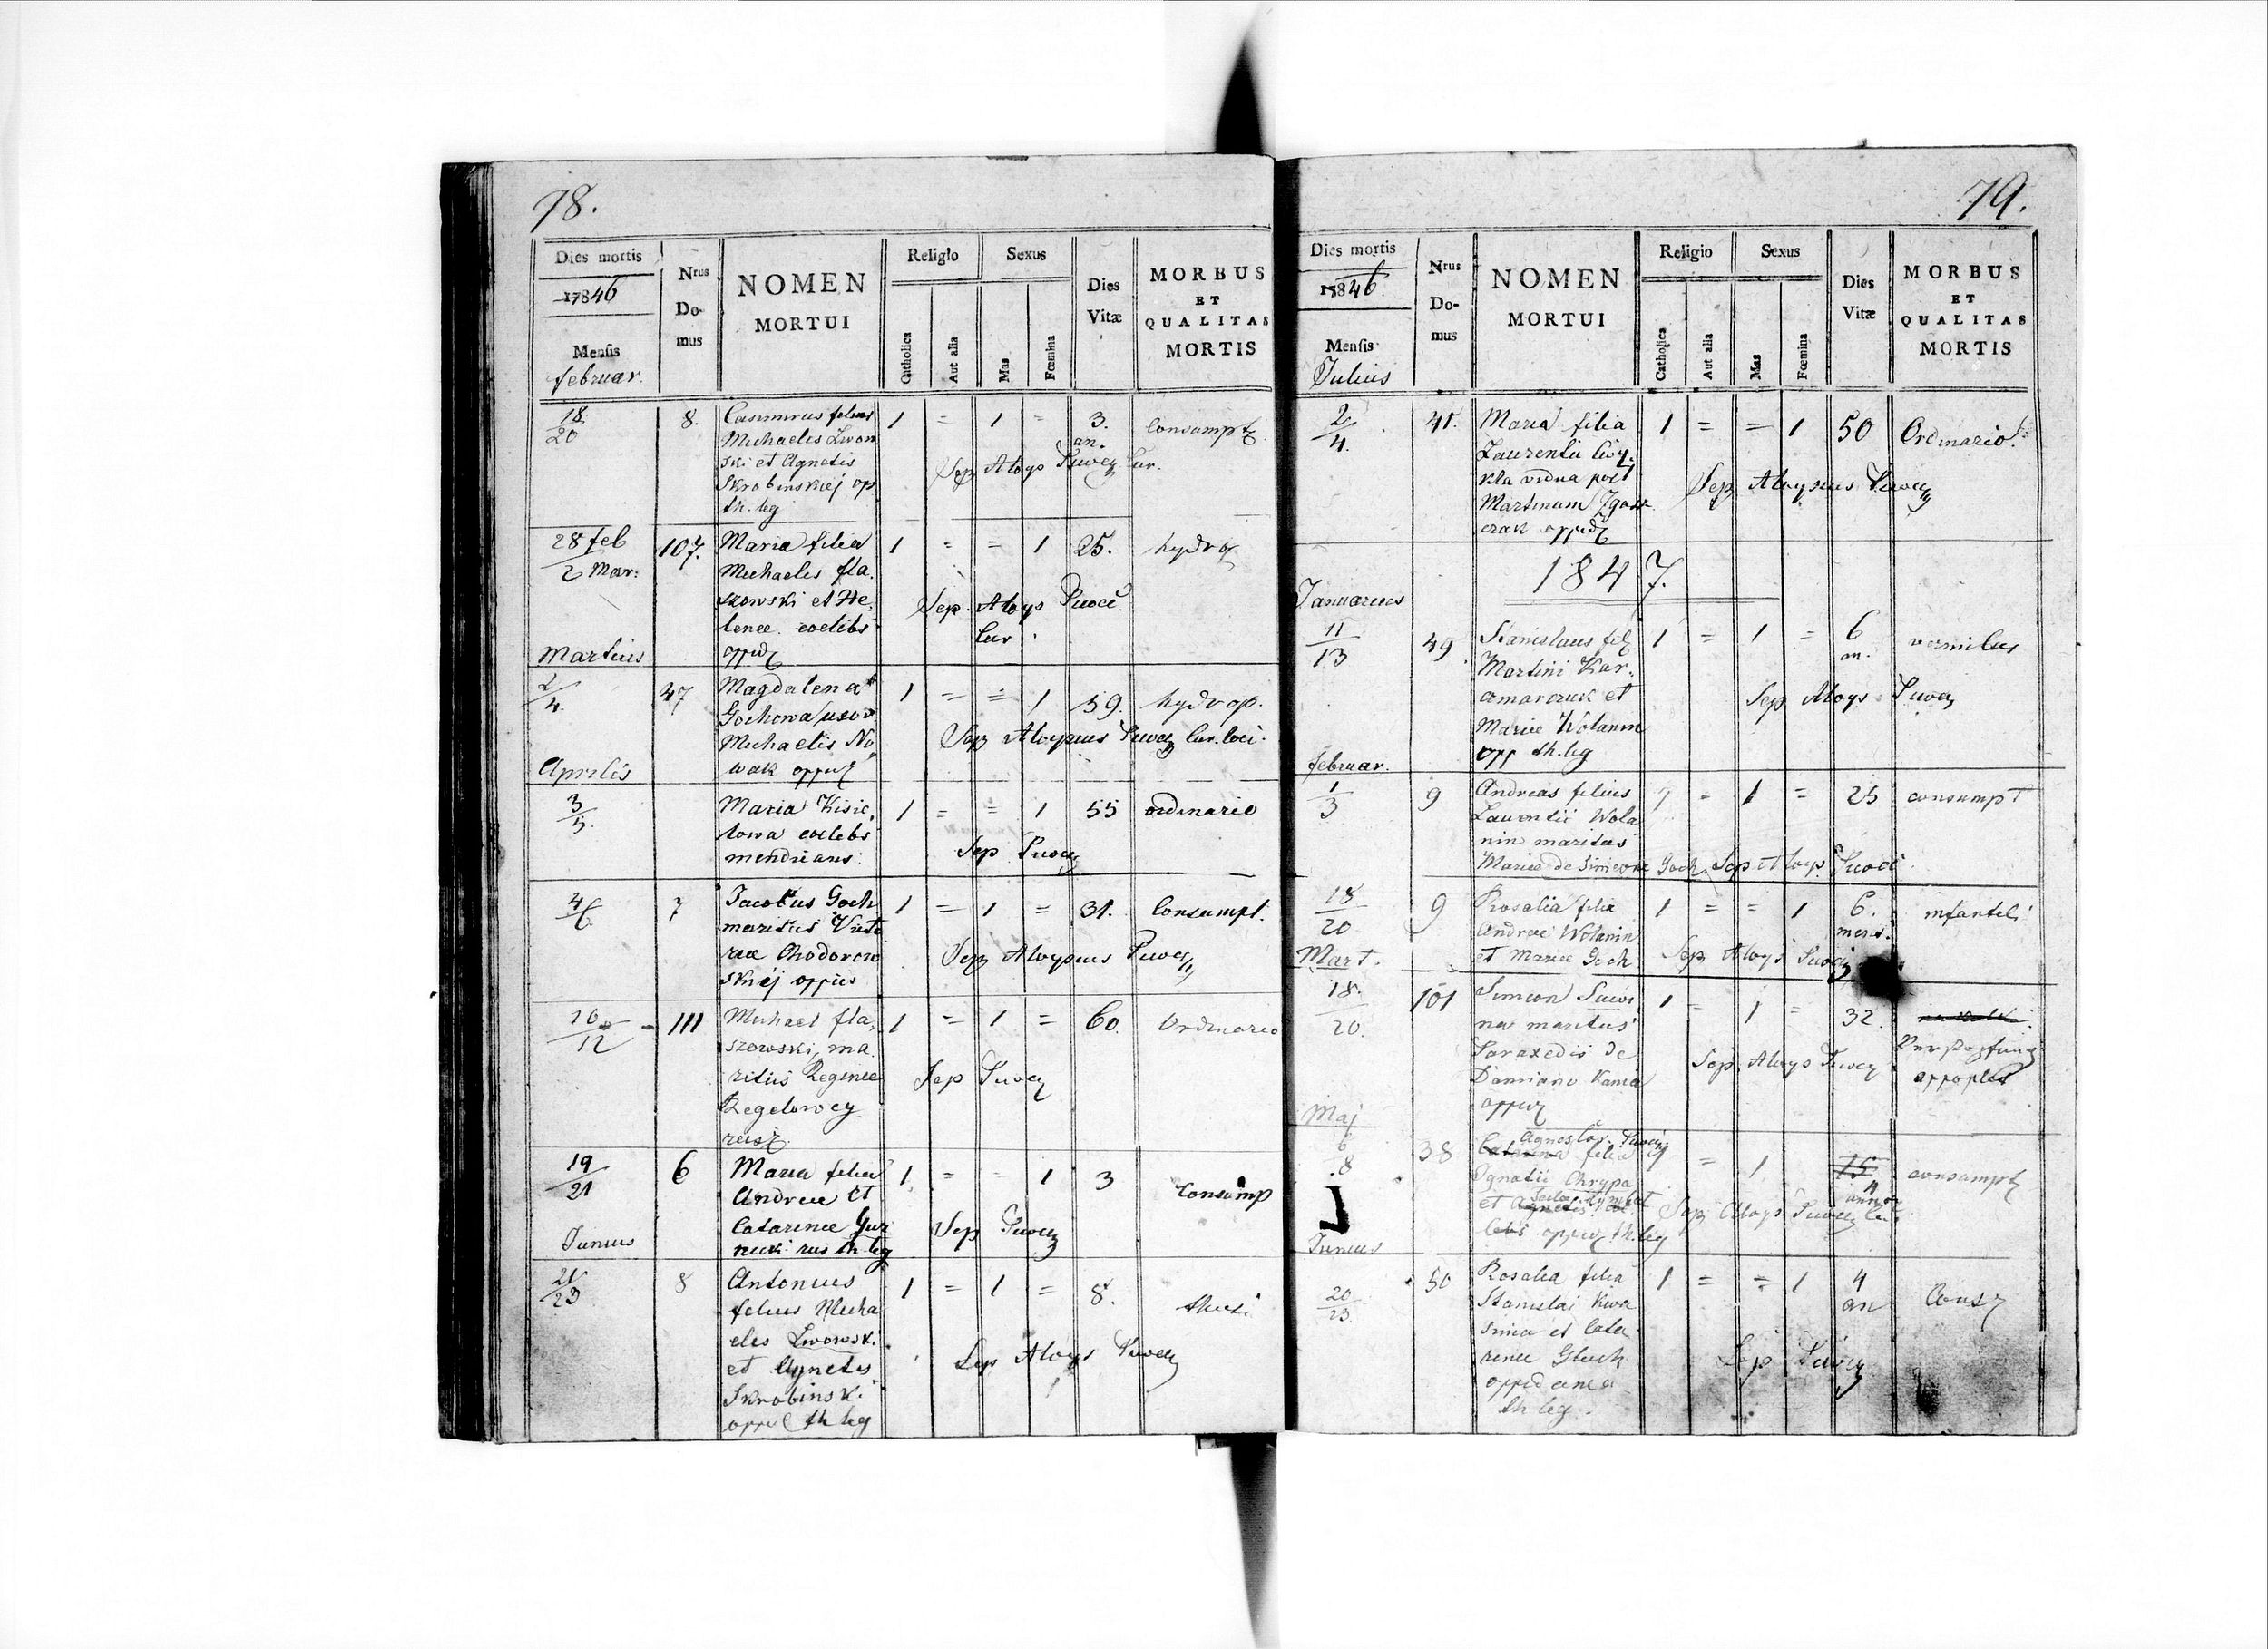 78.
Dies mortis
1846
Mensis
februar.
Nrus
Do-
mus
NOMEN
MORTUI
Religio
Catholica
Aut alia
Sexus
Mas
Fœmina
Dies
Vitæ
MORBUS
ET
QUALITAS
MORTIS
18
20
8.
Casimirus filius
Michaelis Lwow
ski et Agnetis
Skrobinskiej op
th. leg
1 = 1 = 3.
an.
Consumpt
Sep Aloys Cur.
28 feb
2 Mar:
107.
Maria filia
Michaelis fla.
szowski et He
lenee. coelibs
oppid
1 = = 1 25.
hydro
Sep. Aloys
Cur.
Martius
2
4.
47
Magdalena
Gochowa uxor
Michaelis No
wak oppid
1 = = 1 59.
hydrop.
Sep Aloysius Cur. loci.
Aprilis
3
5.
Maria Kisie
lowa coelebs
mendicans
1 = = 1 55
ordinario
Sep
4
6
7
Jacobus Goch
maritus Victo
riæ Chodorow
skiej oppid
1 = 1 = 31.
Consumpt.
Sep Aloysius
10
12
111
Michael fla,
szowski, ma
ritus Reginee
Regelowey
1 = 1 = 60.
Ordinario
Sep
19
21
6
Maria filia
Andreae et
Catarinee
rus th leg
1 = = 1 3
Consump
Sep
Junius
21
23
8
Antonius
filius Micha
elis Lwowski
et Agnetis
Skrobinsk.
oppid th leg
1 = 1 = 8.
Sep Aloys
79.
Dies mortis
1846.
Mensis
Julius
Nrus
Do-
mus
NOMEN
MORTUI
Religio
Catholica
Aut alia
Sexus
Mas
Fœmina
Dies
Vitæ
MORBUS
ET
QUALITAS
MORTIS
2
4.
41.
Maria filia
Laurentii
kla vidua post
Martinum
oppid
1 = = 1 50
Ordinario
Sep Aloysius
1847.
Januarius
11
13
49
Stanislaus fil
Martini Kar
amarczuk et
Mariee Wolanin
opp th. leg
1 = 1 = 6
an.
vermibus
Sep Aloys
februar.
1
3
9
Andreas filius
Laurentii Wola
nin maritus
Mariee de Simeone Goch. Sep Aloys
1 = 25
consumpt
18
20
9
Rosalia filia
Andreæ Wolanin
et Mariee Goch
1 = = 1 6.
mens.
infantil
Sep Aloys
Mart.
18.
20.
101
Simeon
na maritus
Paraxedis de
Damiano Kania
oppid
1 = 1 = 32.
appoplex
Sep Aloys
Maj
6
8
38
Agnes
Catarina filia
Ignatii Chrypa
et
oppid th. leg
= 1
15
4
annor
consumpt
Sep Aloys
Junius
20
23.
50
Rosalia filia
Stanislai Kwa
snica et Cata
rinee Gluch
oppidanea
th leg.
1 = = 1 4
an
Cons
Sep